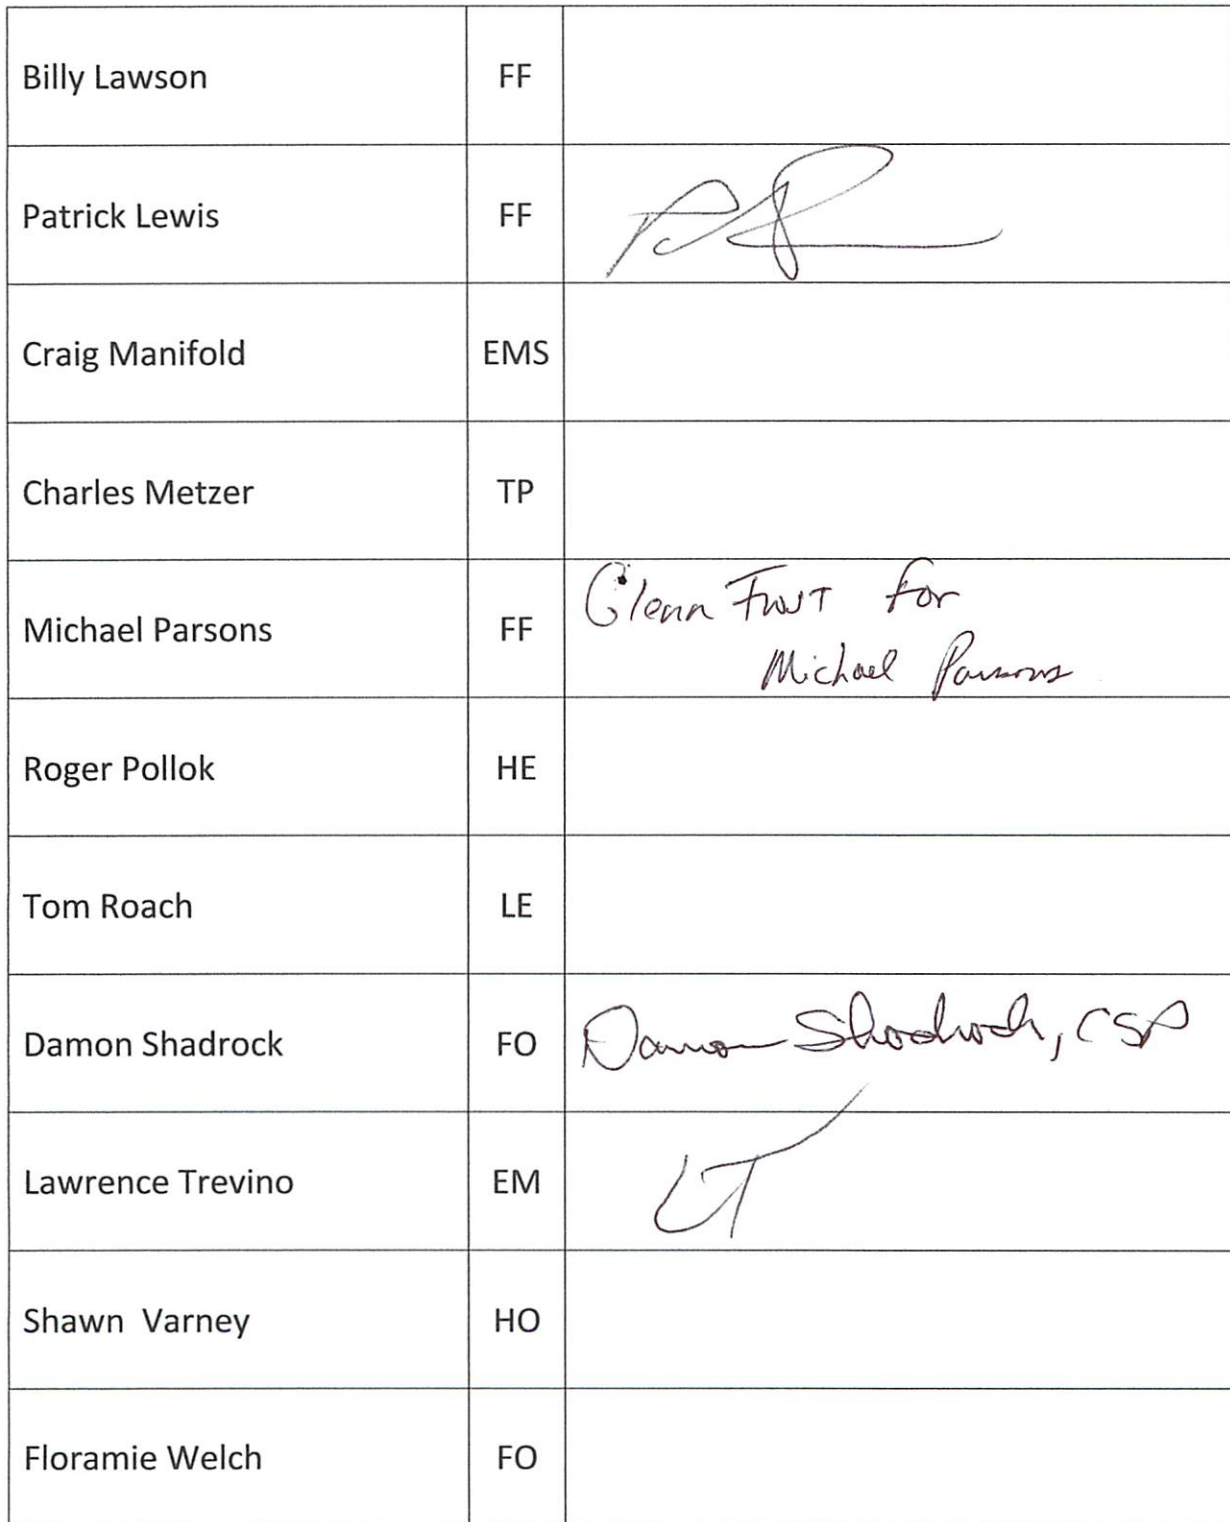 Billy Lawson FF
Patrick Lewis FF
Craig Manifold EMS
Charles Metzer TP
Michael Parsons FF Glenn Frost for
Michael Parsons
Roger Pollok HE
Tom Roach LE
Damon Shadrock FO Damon Shadrock, CSP
Lawrence Trevino EM LT
Shawn Varney HO
Floramie Welch FO